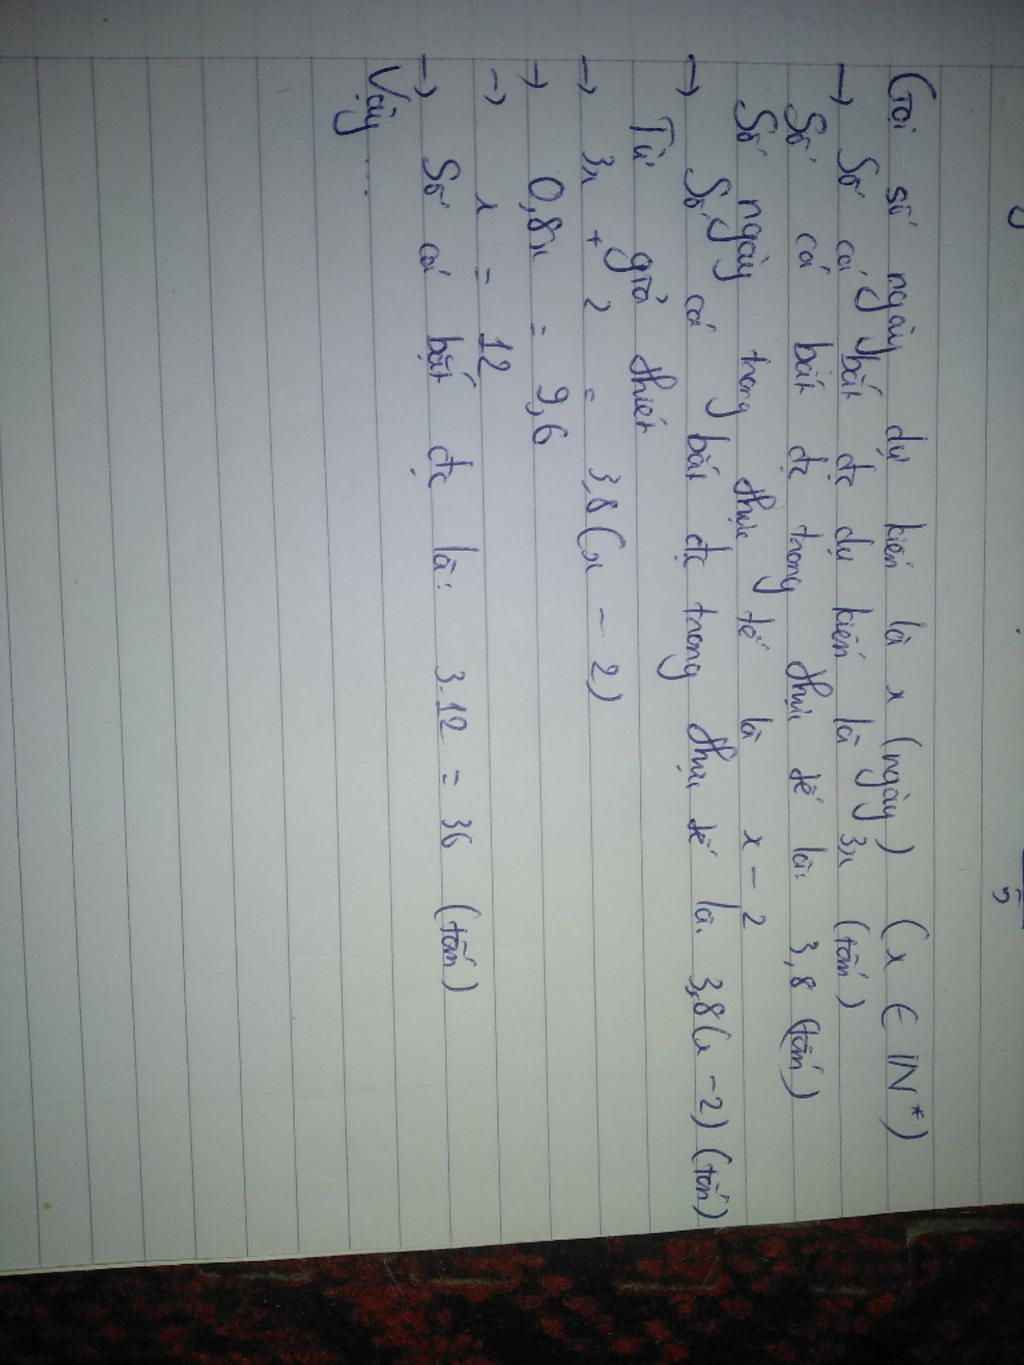 Gọi số ngày dự kiến là x (ngày) (x ∈ IN*)
→ Số cá bắt đc dự kiến là 3x (tấn)
Số cá bắt đc trong thực tế là: 3,8 (tấn)
Số ngày trong thực tế là x - 2
→ Số cá bắt đc trong thực tế là: 3,8(x - 2) (tấn)
Từ giả thiết
→ 3x + 2 = 3,8(x - 2)
→ 0,8x = 9,6
→ x = 12
→ Số cá bắt đc là: 3.12 = 36 (tấn)
Vậy ...